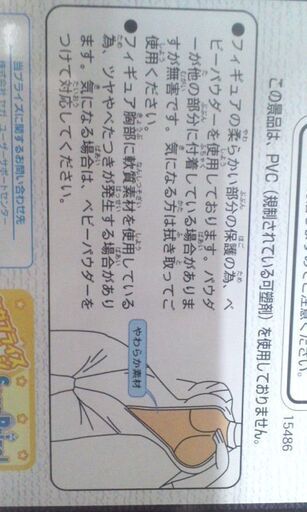 ご注意ください。
15486
この景品は、PVC（規制されている可塑剤）を使用しておりません。
●フィギュアの柔らかい部分の保護の為、ベ
ビーパウダーを使用しております。パウダ
ーが他の部分に付着している場合がありま
すが無害です。気になる方は拭き取ってご
使用ください。
●フィギュア胸部に軟質素材を使用している
為、ツヤやべたつきが発生する場合があり
ます。気になる場合は、ベビーパウダーを
つけて対応してください。
やわらか素材
当プライズに関するお問い合わせ先
株式会社 セガ ユーザーサポートセンター